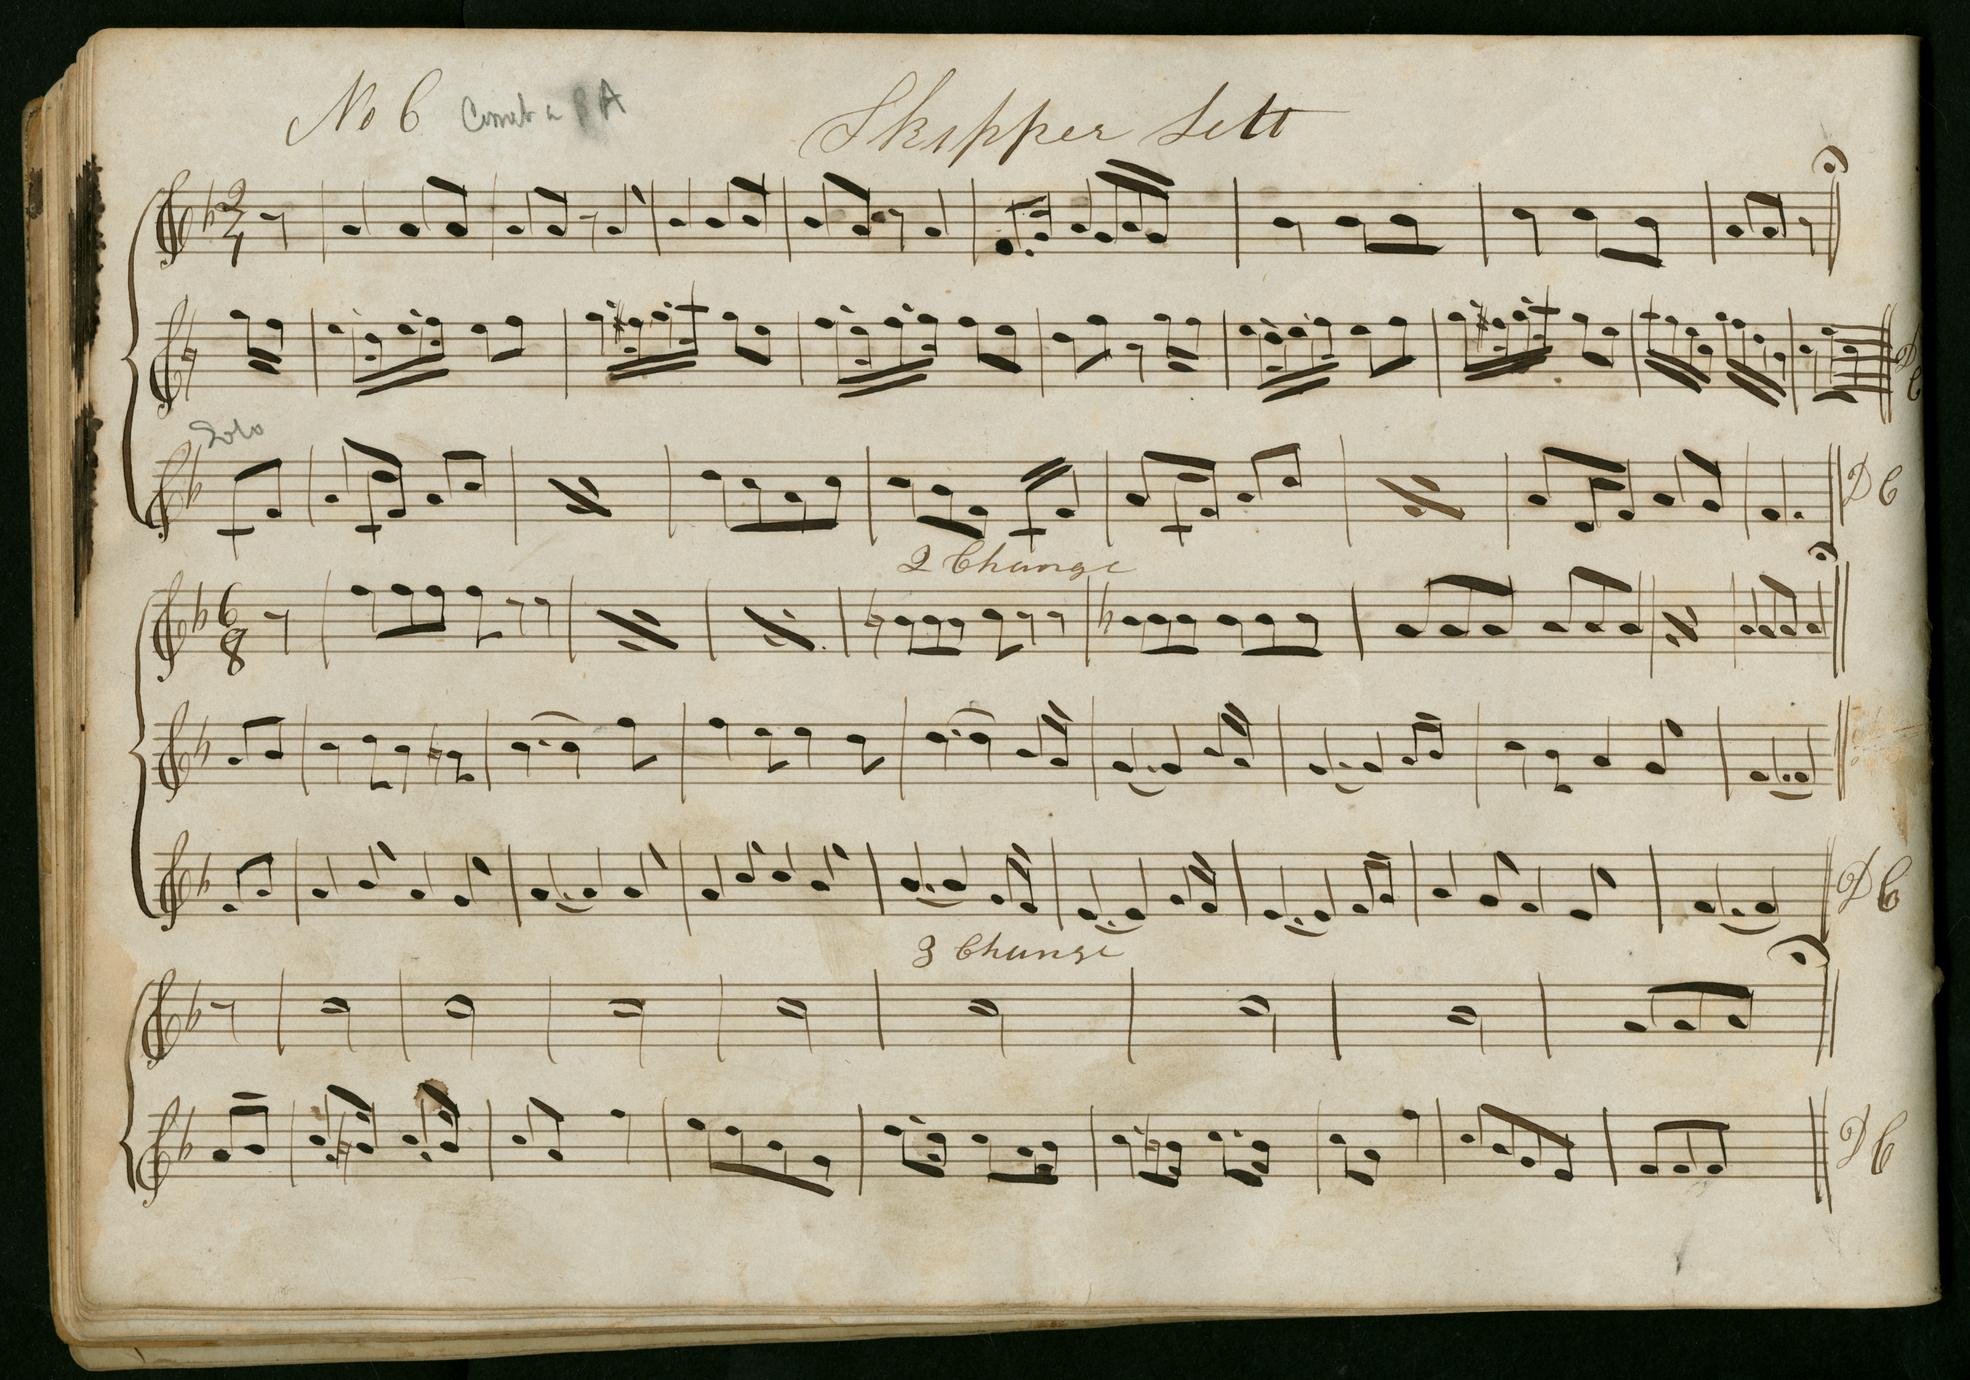 No 6 Skipper Sett
2
4
D C
Solo
D C
2 Change
6
8
D C
3 Change
D C